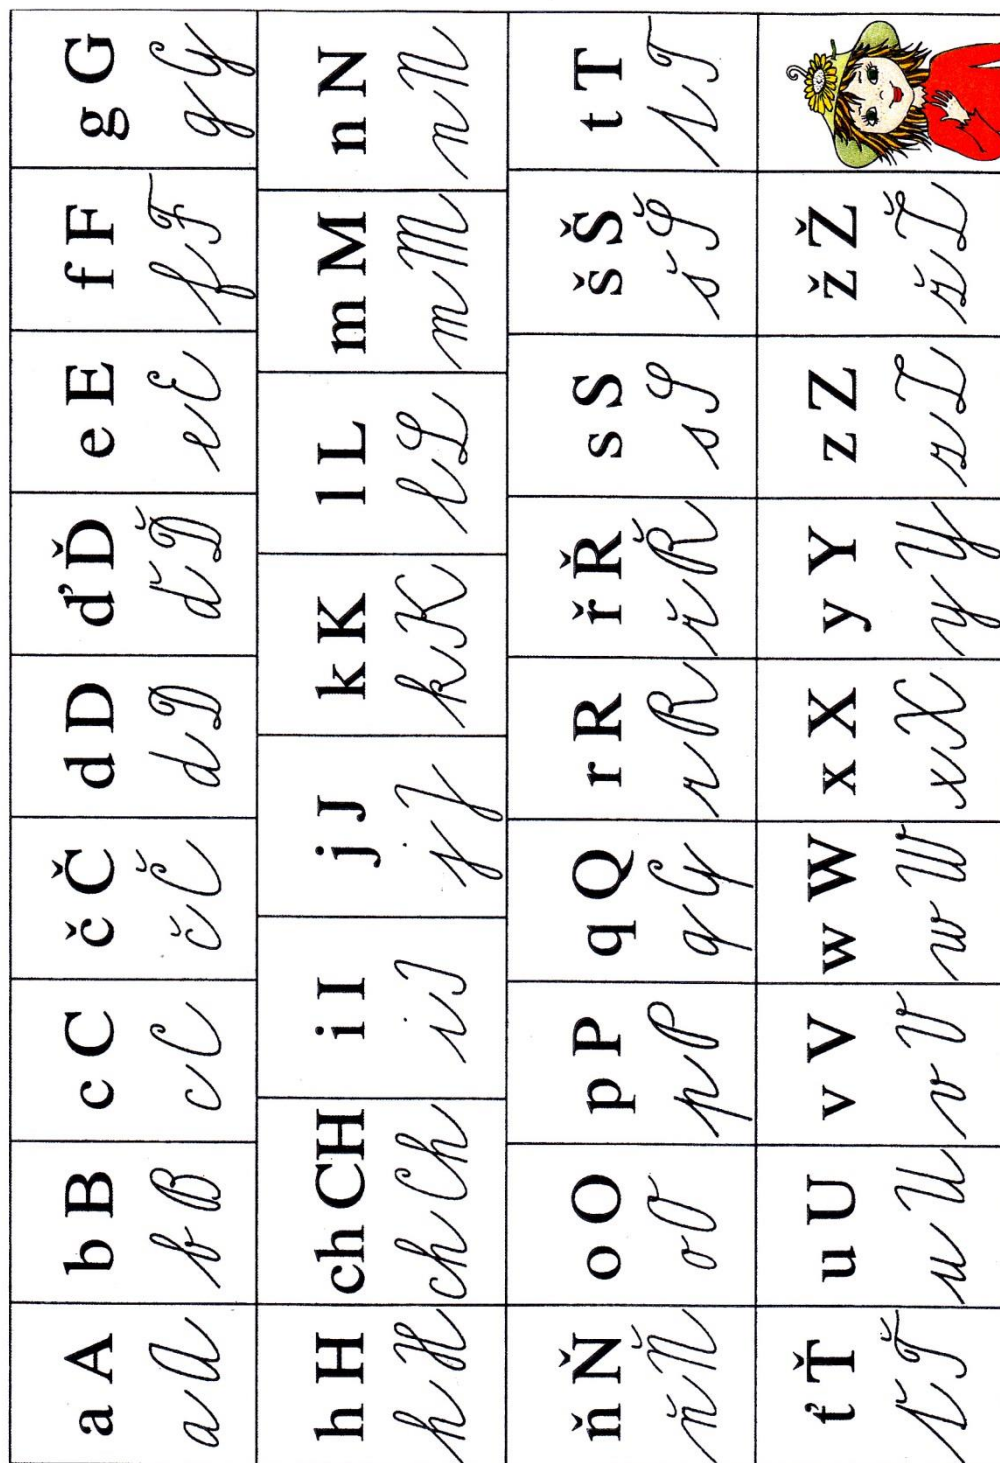 a A b B c C č Č d D ď Ď e E f F g G
a A b B c C č Č d D ď Ď e E f F g G
h H ch CH i I j J k K l L m M n N
h H ch Ch i I j J k K l L m M n N
ň Ň o O p P q Q r R ř Ř s S š Š t T
ň Ň o O p P q Q r R ř Ř s S š Š t T
ť Ť u U v V w W x X y Y z Z ž Ž
ť Ť u U v V w W x X y Y z Z ž Ž